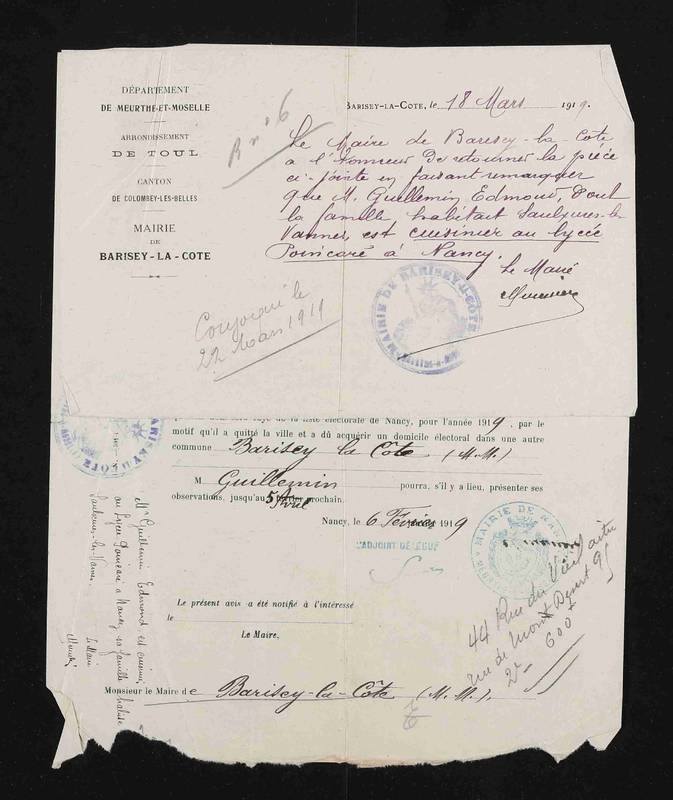 DÉPARTEMENT
DE MEURTHE-ET-MOSELLE
ARRONDISSEMENT
DE TOUL
CANTON
DE COLOMBEY-LES-BELLES
MAIRIE
DE
BARISEY-LA-COTE
BARISEY-LA-COTE, le 18 Mars 1919.
Le Maire de Barisey-la-Cote
a l'honneur de retourner la pièce
ci-jointe en faisant remarquer
que M. Guillemin Edmond, dont
la famille habitait Saulxures-les-
Vannes, est cuisinier au lycée
Poincaré à Nancy.
Le Maire
22 Mars 1919
MAIRIE DE BARISEY-LA-COTE
de la liste électorale de Nancy, pour l'année 1919, par le
motif qu'il a quitté la ville et a dû acquérir un domicile électoral dans une autre
commune Barisey la Côte (M.-M.)
M Guillemin pourra, s'il y a lieu, présenter ses
observations, jusqu'au 5 Avril prochain.
Nancy, le 6 Février 1919
L'ADJOINT DÉLÉGUÉ
MAIRIE DE
Le présent avis a été notifié à l'intéressé
le
Le Maire,
Monsieur le Maire de Barisey-la-Côte (M.M.).
Mr Guillemin Edmond est
au Lycée Poincaré à Nancy sa famille habite
Saulxures-les-Vannes.
Le Maire
44 Rue du
rue de Mont Désert 91
600